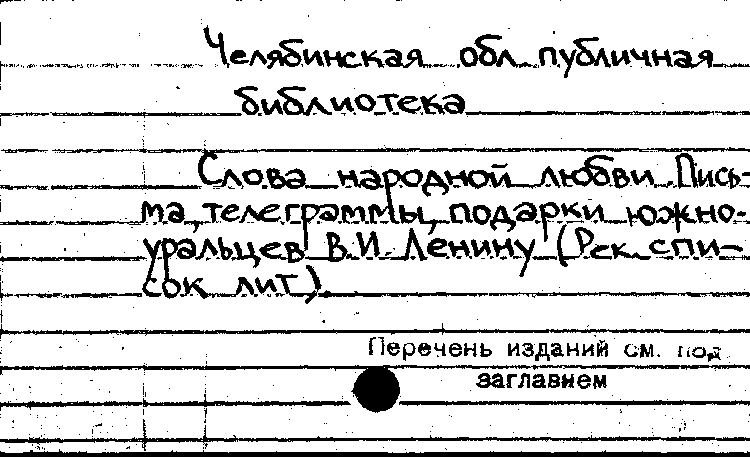 Челябинская обл. публичная
библиотека
Слова народной любви. Пись-
ма, телеграммы, подарки южно-
уральцев В.И. Ленину (Рек. спи-
сок лит).
Перечень изданий см. под
заглавием